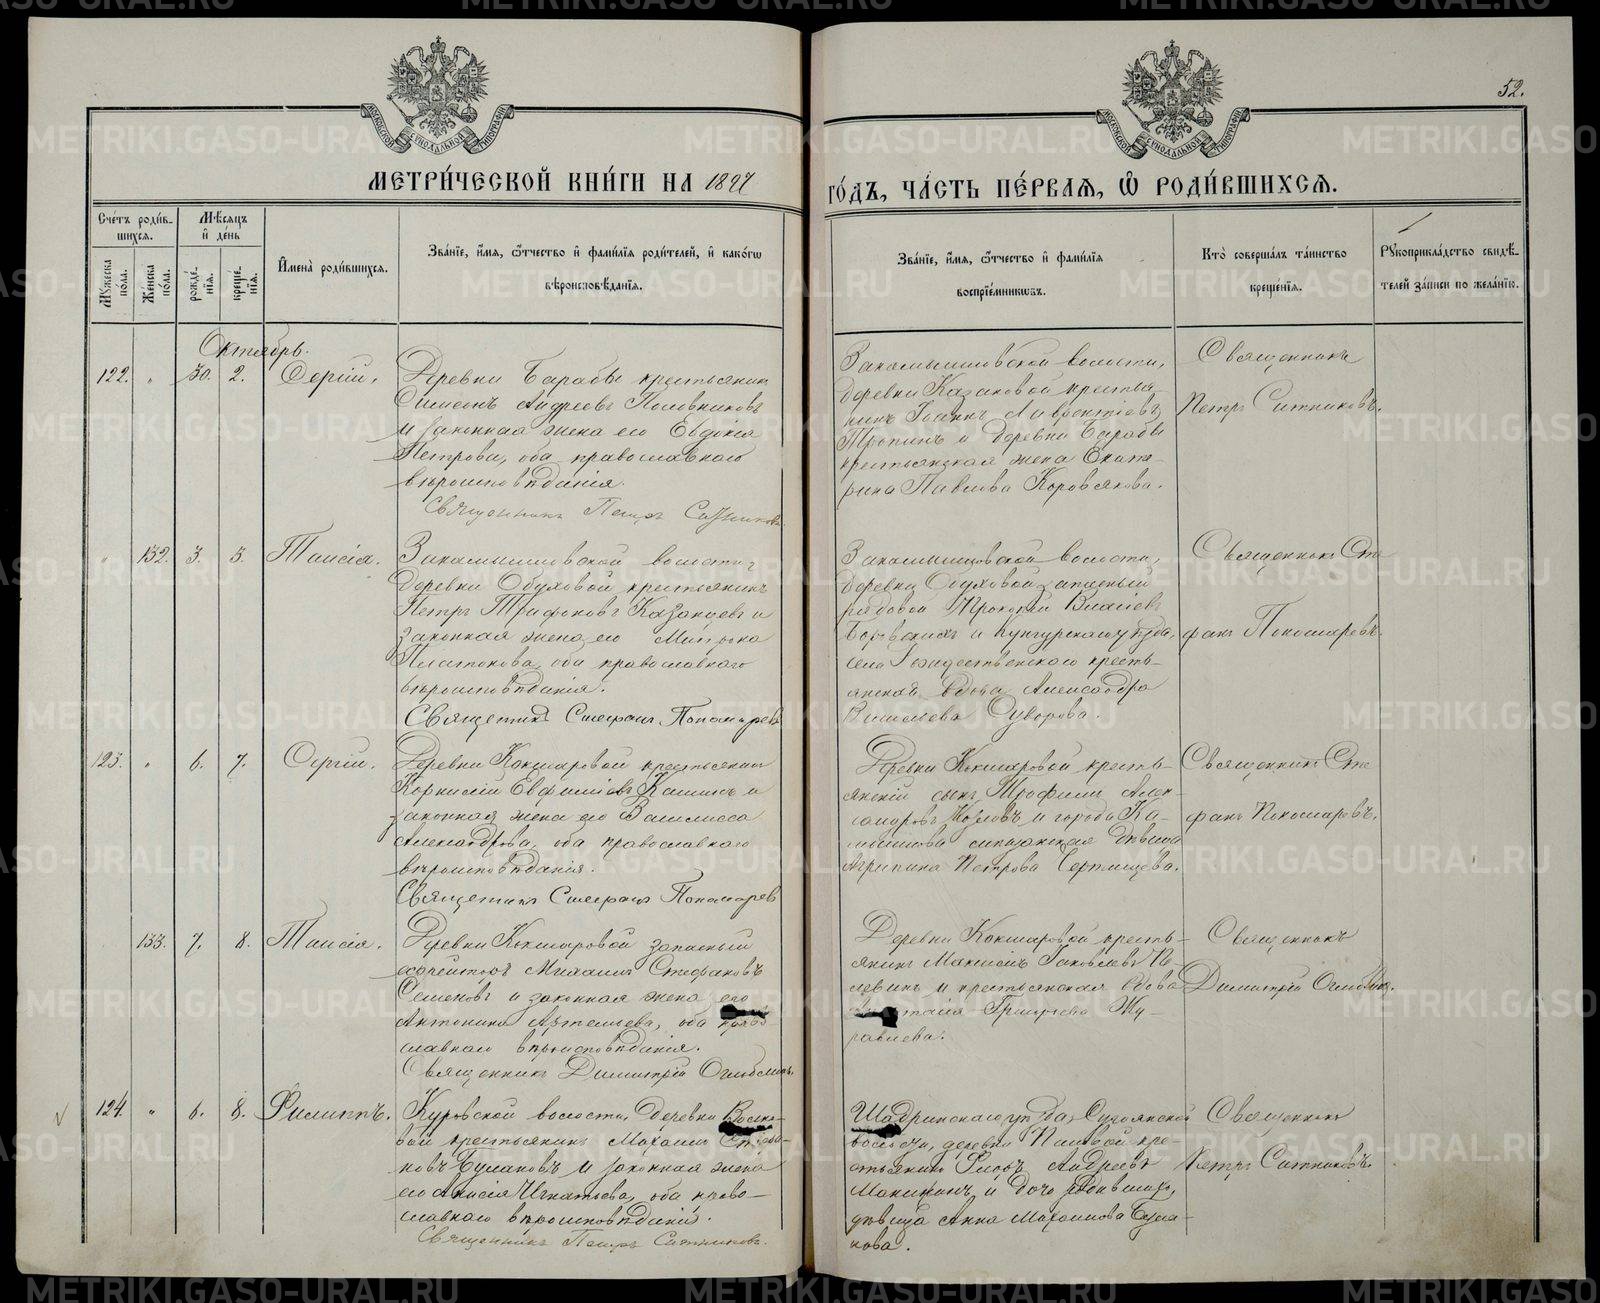 52.
МОСКОВСКОЙ СѴНОДАЛЬНОЙ ТИПОГРАФІИ
МЕТРИ́ЧЕСКОЙ КНИ́ГИ НА 1897
ГО́ДЪ, ЧА́СТЬ ПЕ́РВАЯ, Ѡ҆ РОДИ́ВШИХСЯ.
Сче́тъ роди́в-
шихся.
Мѣ́сяцъ
и҆ де́нь
Мꙋ́жеска по́ла.
Же́нска по́ла.
рожде́-
нїя.
креще́-
нїя.
И҆мена̀ роди́вшихся.
Зва́нїе, и҆́мя, ѻ҆́тчество и҆ фами́лїя роди́телей, и҆ како́гѡ
вѣроисповѣ́данїя.
Зва́нїе, и҆́мя, ѻ҆́тчество и҆ фами́лїя
воспрїе́мникѡвъ.
Кто̀ соверша́лъ та́инство
креще́нїя.
Рꙋкоприкла́дство свидѣ́-
телей за́писи по жела́нїю.
Октябрь.
122. " 30. 2. Сергій.
Деревни Барабы крестьянинъ
Симеонъ Андреевъ Половниковъ
и законная жена его Евдокія
Петрова, оба православнаго
вѣроисповѣданія.
Священникъ Петръ Ситниковъ
Закамышловской волости,
деревни Казаковой крестья-
нинъ Іоаннъ Лаврентіевъ
Тропинъ и деревни Барабы
крестьянская жена Екате-
рина Павлова Коровякова.
Священникъ
Петръ Ситниковъ.
" 132. 3. 5. Таисія.
Закамышловской волости,
деревни Обуховой крестьянинъ
Петръ Трифоновъ Казанцевъ и
законная жена его
Платонова, оба православнаго
вѣроисповѣданія.
Священникъ Стефанъ Пономаревъ
Закамышловской волости,
деревни Обуховой запасный
рядовой Прокопій Власіевъ
и Кунгурскаго уѣзда,
села Рождественскаго кресть-
янская вдова Александра
Васильева Суворова.
Священникъ Сте-
фанъ Пономаревъ.
123. " 6. 7. Сергій.
Деревни Кокшаровой крестьянинъ
Корнилій Евфиміевъ Кашинъ и
законная жена его Василисса
Александрова, оба православнаго
вѣроисповѣданія.
Священникъ Стефанъ Пономарев
Деревни Кокшаровой кресть-
янскій сынъ Трофимъ Алек-
сандровъ Козловъ и города Ка-
мышлова мѣщанская дѣвица
Агрипина Петрова
Священникъ Сте-
фанъ Пономаревъ.
133. 7. 8. Таисія.
Деревни Кокшаровой запасный
ефрейторъ Михаилъ Стефановъ
Семеновъ и законная жена его
Антонина Артемьева, оба право-
славнаго вѣроисповѣданія.
Священникъ Димитрій
Деревни Кокшаровой кресть-
янинъ Максимъ Іаковлевъ По-
левинъ и крестьянская вдова
Анастасія Григорьева Жу-
равлева.
Священникъ
Димитрій
124. " 6. 8. Филиппъ.
Куровской волости, деревни
крестьянинъ Михаилъ Стефа-
новъ Булаковъ и законная жена
его Анисія Игнатьева, оба право-
славнаго вѣроисповѣданія.
Священникъ Петръ Ситниковъ.
Шадринскаго уѣзда,
волости, деревни кре-
стьянинъ Андреевъ
и дочь родившихъ,
дѣвица Анна Михаилова Була-
кова.
Священникъ
Петръ Ситниковъ.
METRIKI.GASO-URAL.RU